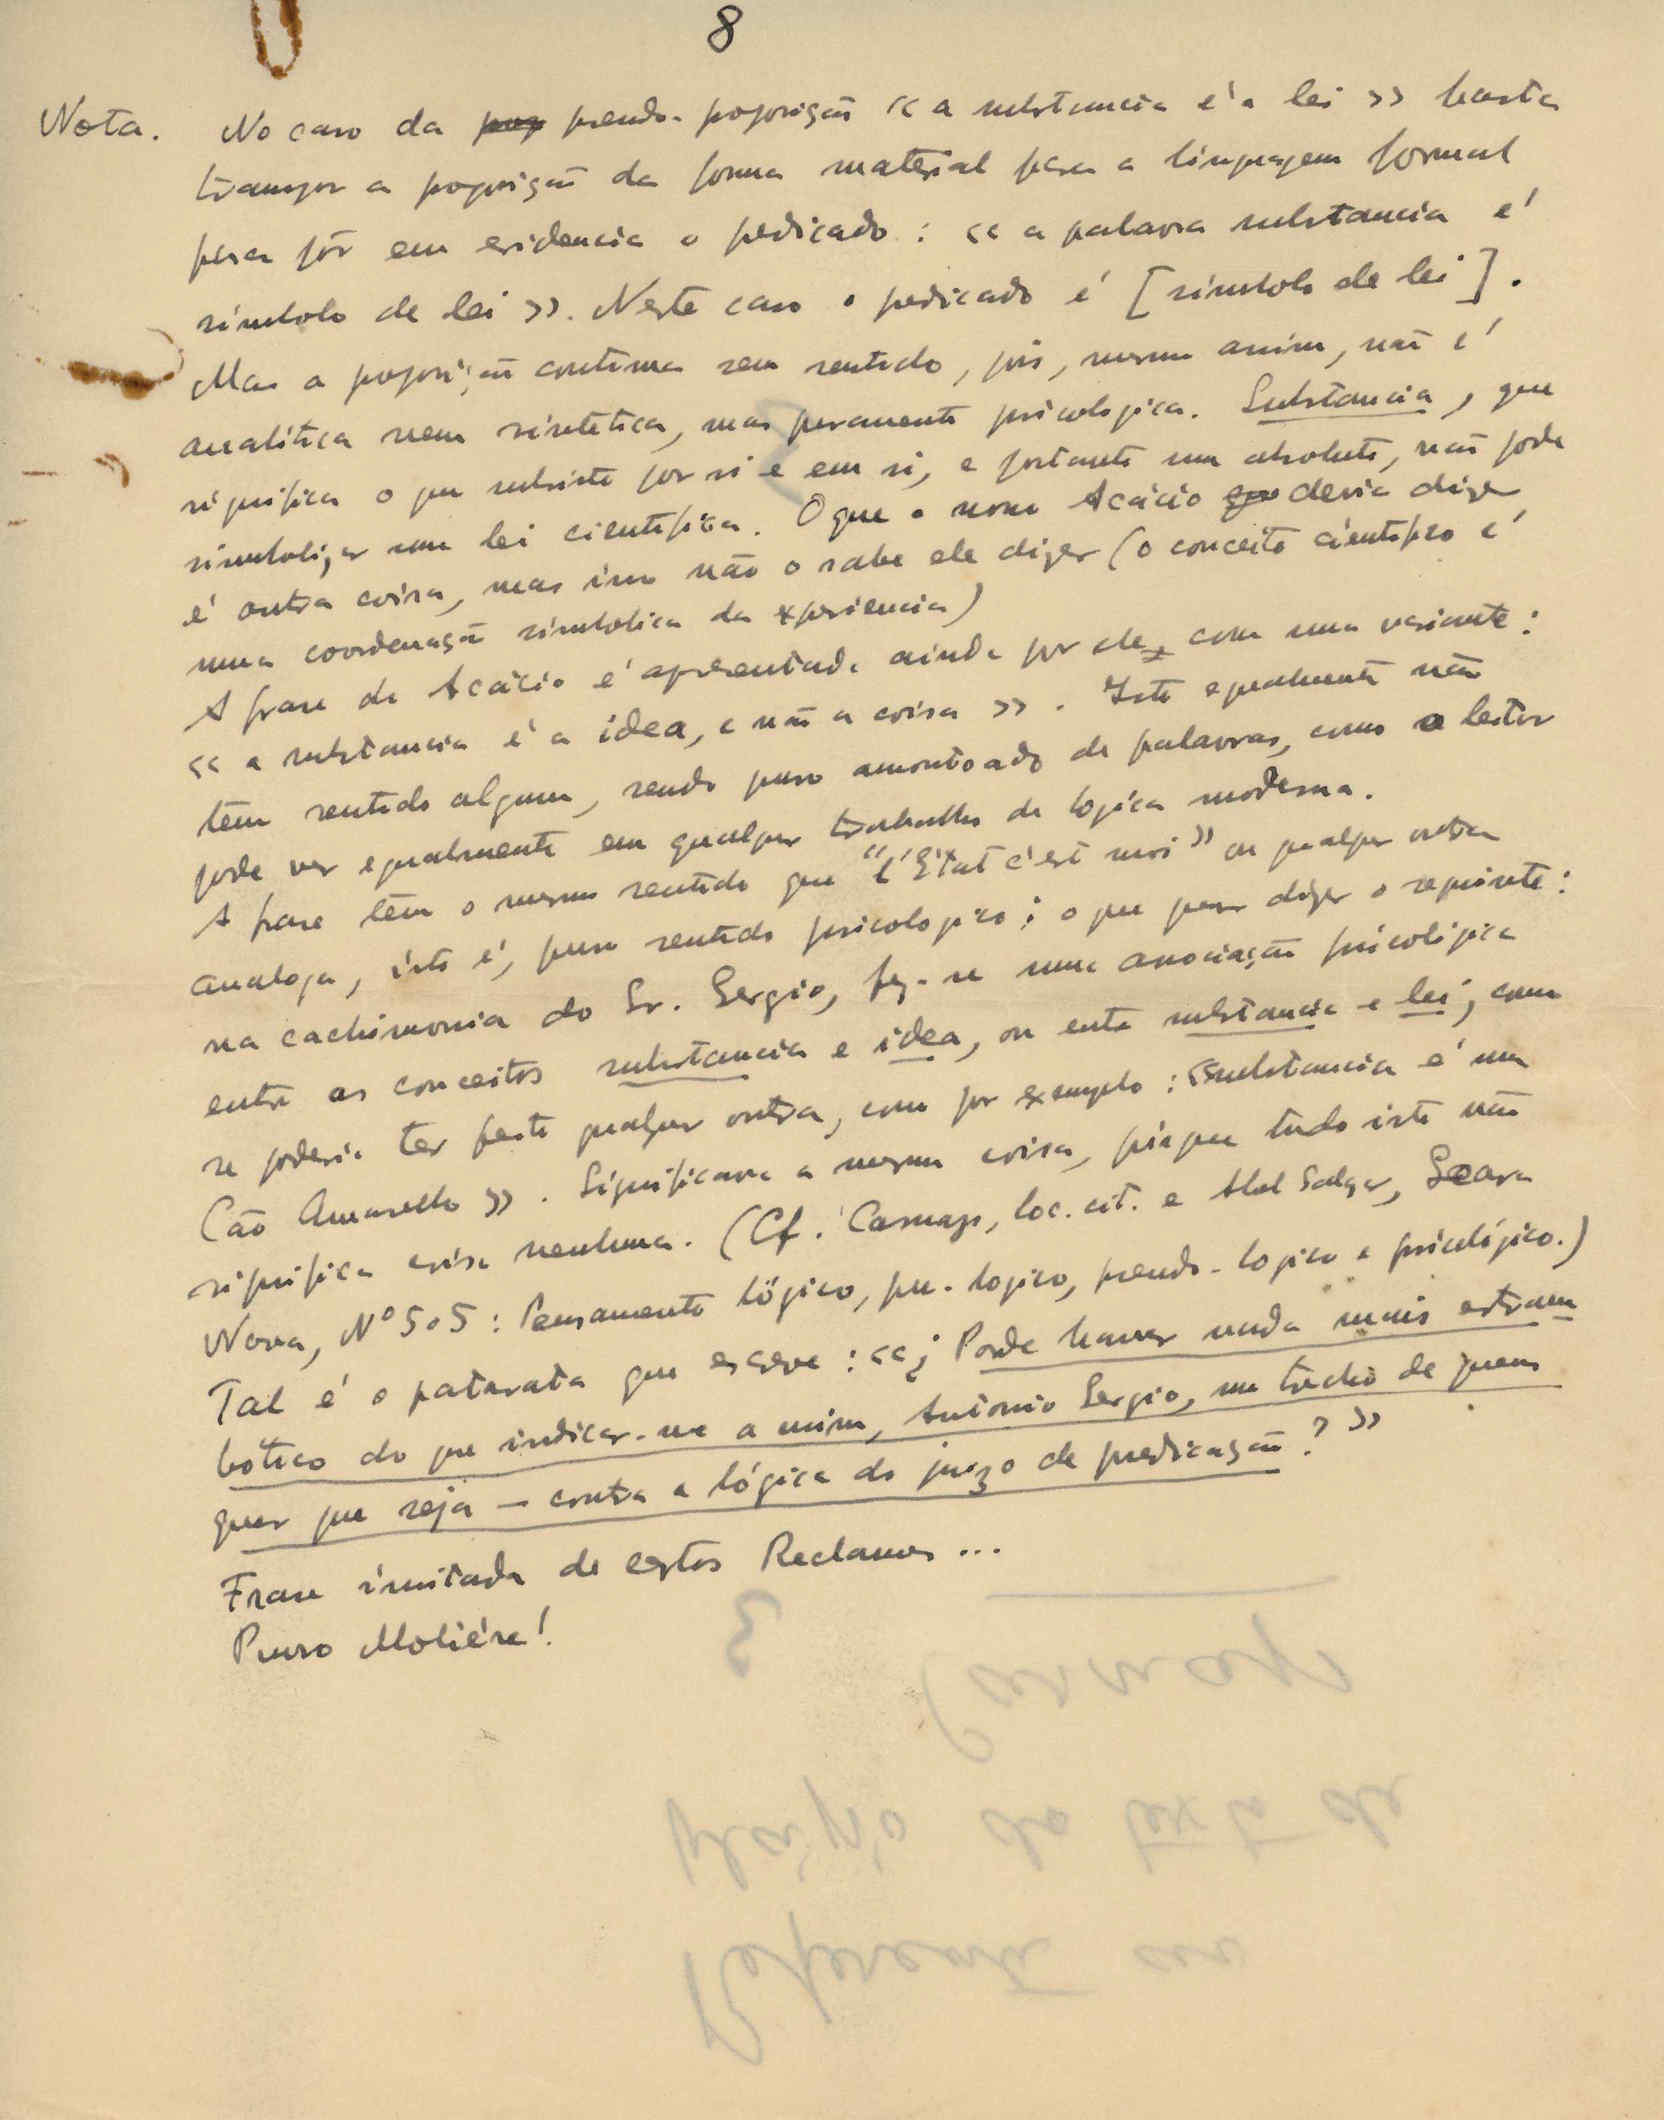 8
Nota. No caso da pseudo-proposição << a substancia é a lei >> basta
transpor a proposição da forma material para a linguagem formal
para pôr em evidencia o predicado : << a palavra substancia é
símbolo de lei >>. Neste caso o predicado é [símbolo de lei].
Mas a proposição continua sem sentido, pois, mesmo assim, não é
analítica nem sintética, mas puramente psicologica. Substancia, que
significa o que subsiste por si e em si, e portanto um absoluto, não pode
simbolizar uma lei cientifica. O que o novo Acácio deveria dizer
é outra coisa, mas isso não o sabe ele dizer (o conceito cientifico é
uma coordenação simbolica da experiencia)
A frase de Acácio é apresentada ainda por ele, com uma variante :
<< a substancia é a idea, e não a coisa >>. Isto egualmente não
tem sentido algum, sendo puro amontoado de palavras, como o leitor
pode ver egualmente em qualquer trabalho de logica moderna.
A frase tem o mesmo sentido que "l'État c'est moi" ou qualquer outra
analoga, isto é, puro sentido psicologico ; o que quer dizer o seguinte :
na cachimonia do Sr. Sergio, fez-se uma associação psicológica
entre os conceitos substancia e idea, ou entre substancia e lei, como
se poderia ter feito qualquer outra, como por exemplo : << substancia é um
Cão Amarello >>. Significava a mesma coisa, porque tudo isto não
significa coisa nenhuma. (Cf. Carnap, loc. cit. e Abel Salazar, Seara
Nova, Nº 505 : Pensamento lógico, pre-logico, pseudo-logico e psicológico.)
Tal é o patarata que escreve : << ¿ Pode haver nada mais estram
bótico do que indicar-me a mim, António Sergio, um trecho de quem
quer que seja — contra a lógica do juizo de predicação ? >>
Frase imitada de certos Reclames...
Puro Moliére!
Referente ao
plágio do texto de
Carnap